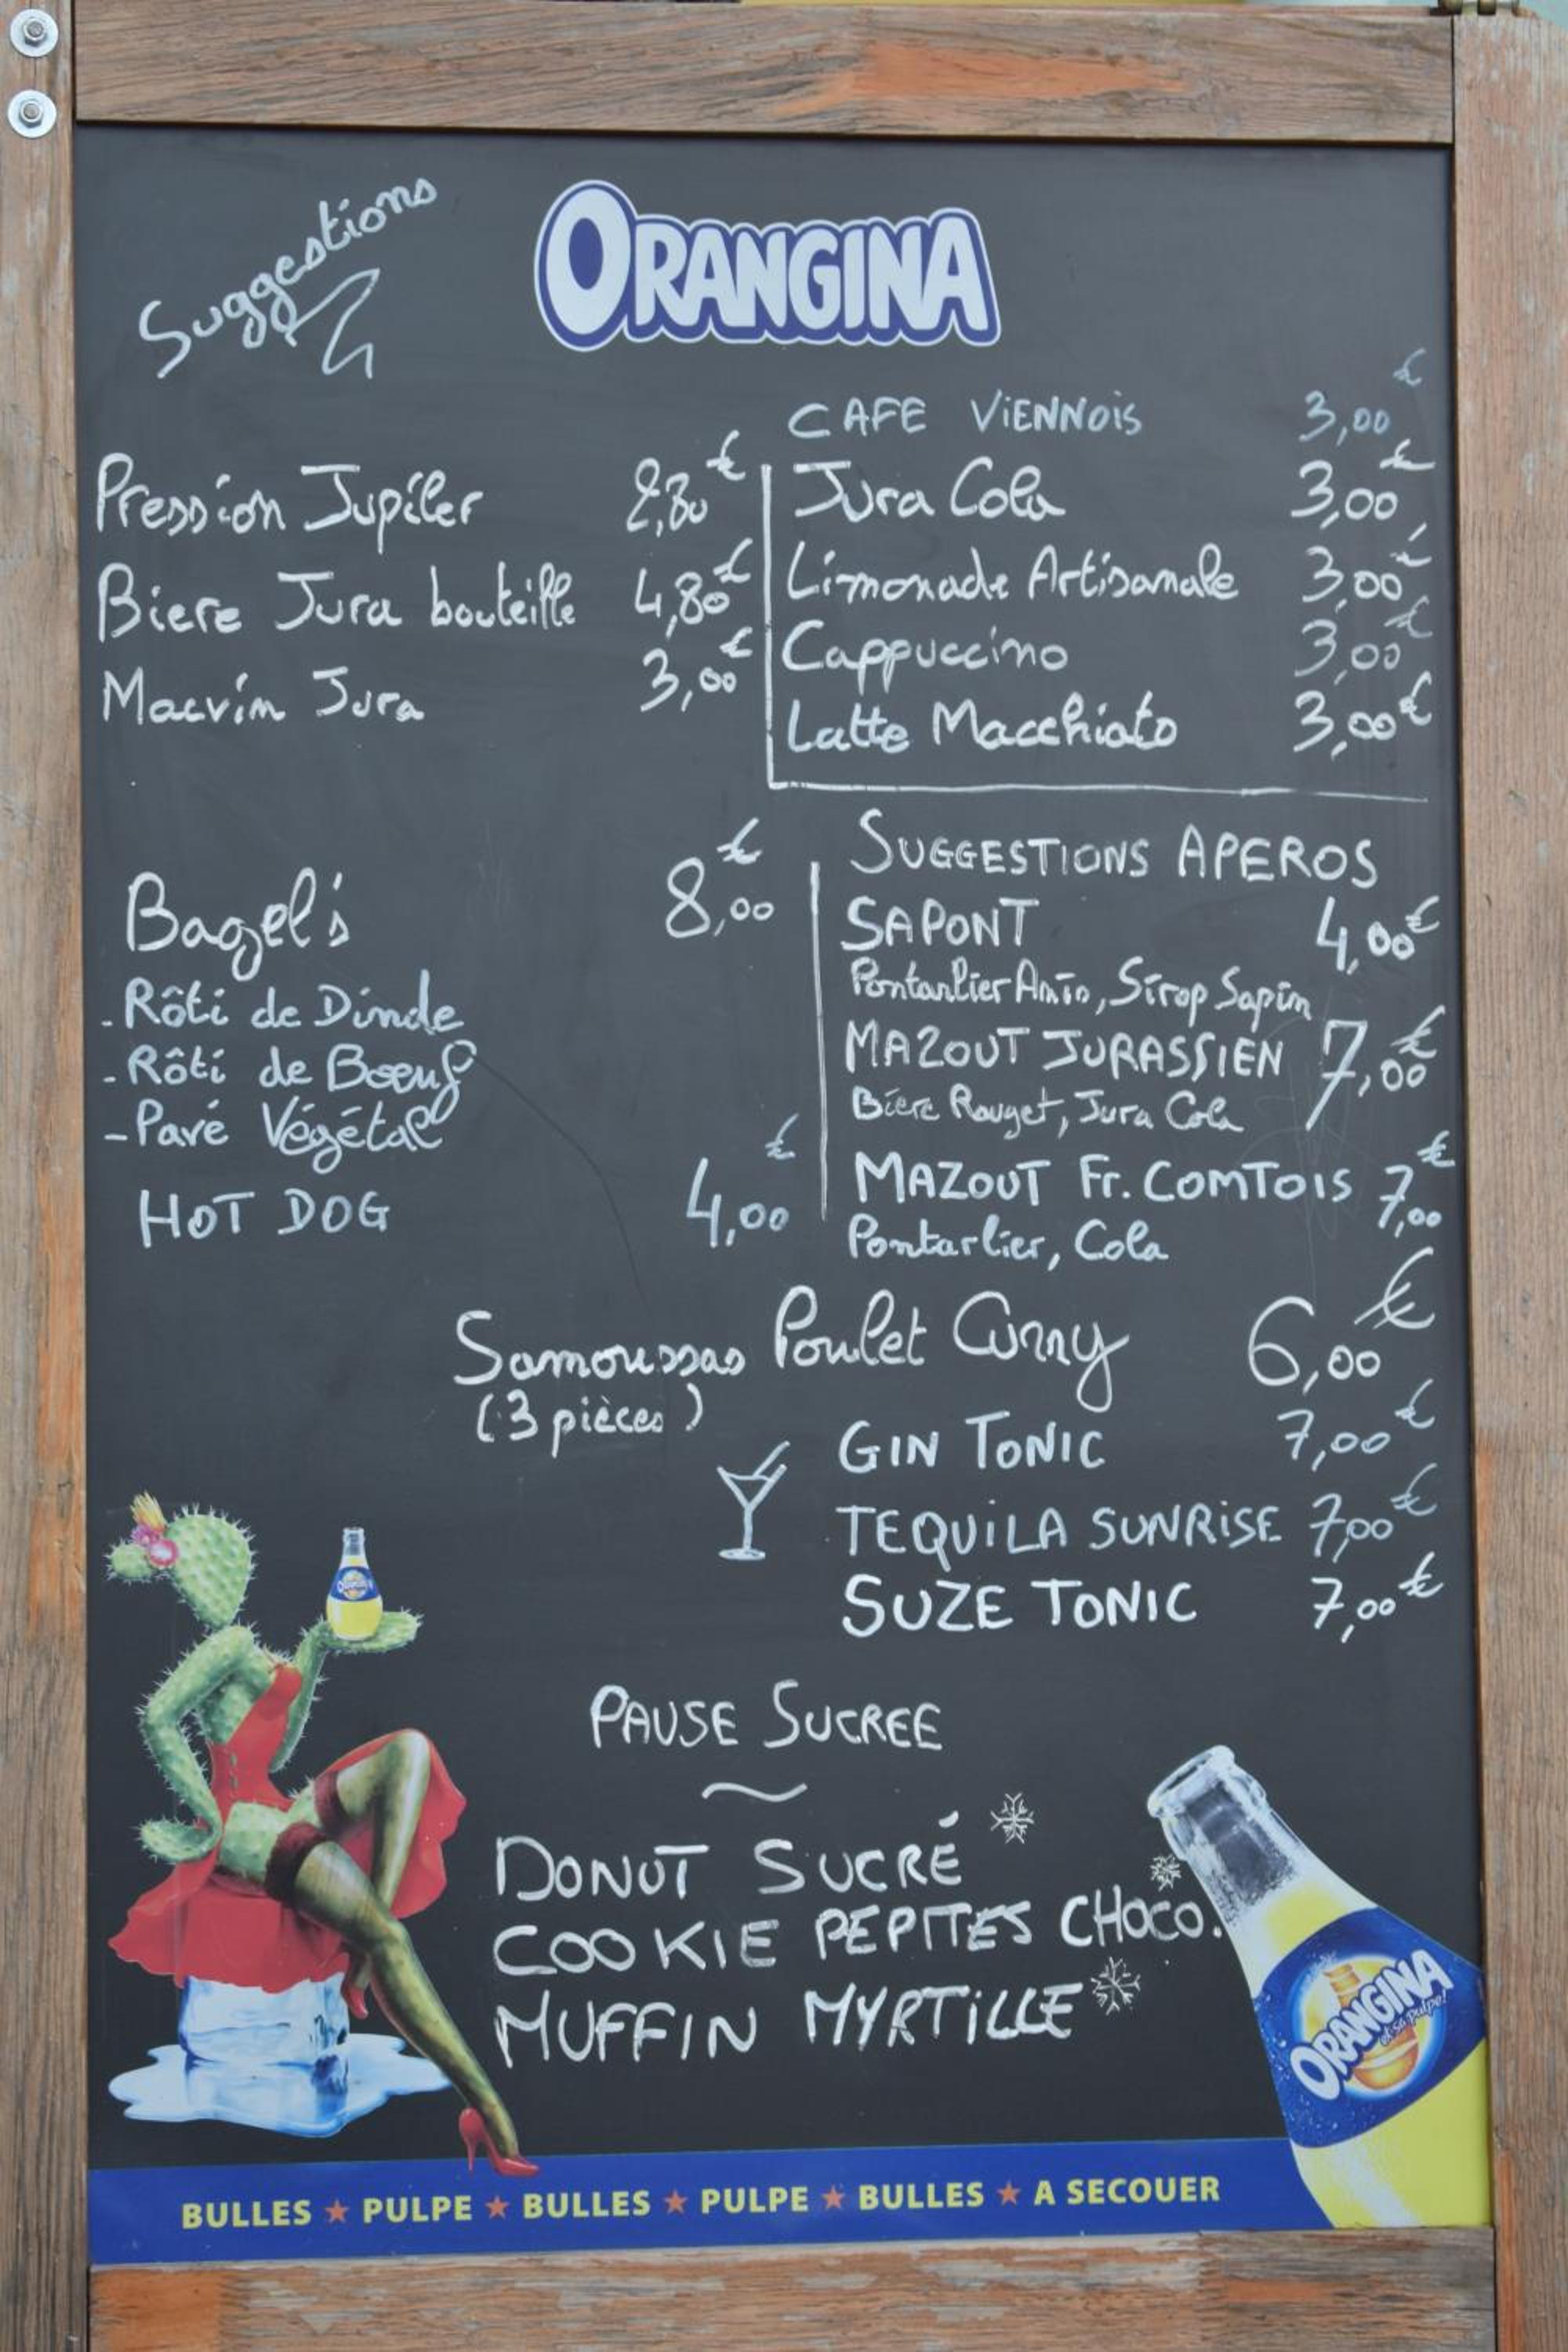 Suggestions
ORANGINA
CAFE VIENNOIS 3,00 €
Pression Jupiler 2,80 €
Biere Jura bouteille 4,80 €
Macvin Jura 3,00 €
Jura Cola 3,00 €
Limonade Artisanale 3,00 €
Cappuccino 3,00 €
Latte Macchiato 3,00 €
Bagel's 8,00 €
- Rôti de Dinde
- Rôti de Boeuf
- Pavé Végétal
HOT DOG 4,00 €
SUGGESTIONS APEROS
SAPONT 4,00 €
Pontarlier Anis, Sirop Sapin
MAZOUT JURASSIEN 7,00 €
Bière Rouget, Jura Cola
MAZOUT Fr. COMTOIS 7,00 €
Pontarlier, Cola
Samoussas Poulet Curry 6,00 €
(3 pièces)
GIN TONIC 7,00 €
TEQUILA SUNRISE 7,00 €
SUZE TONIC 7,00 €
PAUSE SUCREE
~
DONUT SUCRÉ
COOKIE PEPITES CHOCO.
MUFFIN MYRTILLE
ORANGINA
et sa pulpe!
BULLES ★ PULPE ★ BULLES ★ PULPE ★ BULLES ★ A SECOUER